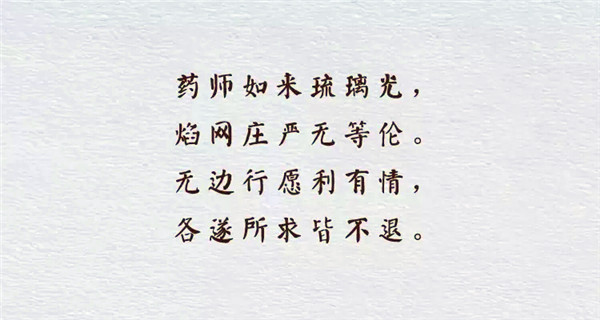 药师如来琉璃光，
焰网庄严无等伦。
无边行愿利有情，
各遂所求皆不退。